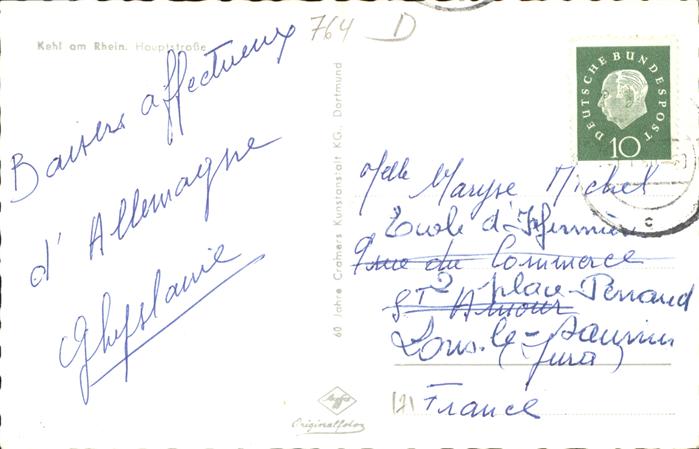 764 D
Kehl am Rhein. Hauptstraße
Baisers affectueux
d'Allemagne
Ghyslaine
60 Jahre Cramers Kunstanstalt KG., Dortmund
Agfa
Originalfoto
DEUTSCHE BUNDESPOST
10
c
Melle Maryse Michel
Ecole d'Infirmière
9 rue du Commerce
2 place Perraud
St Amour
Lons-le-Saunier
(Jura)
France